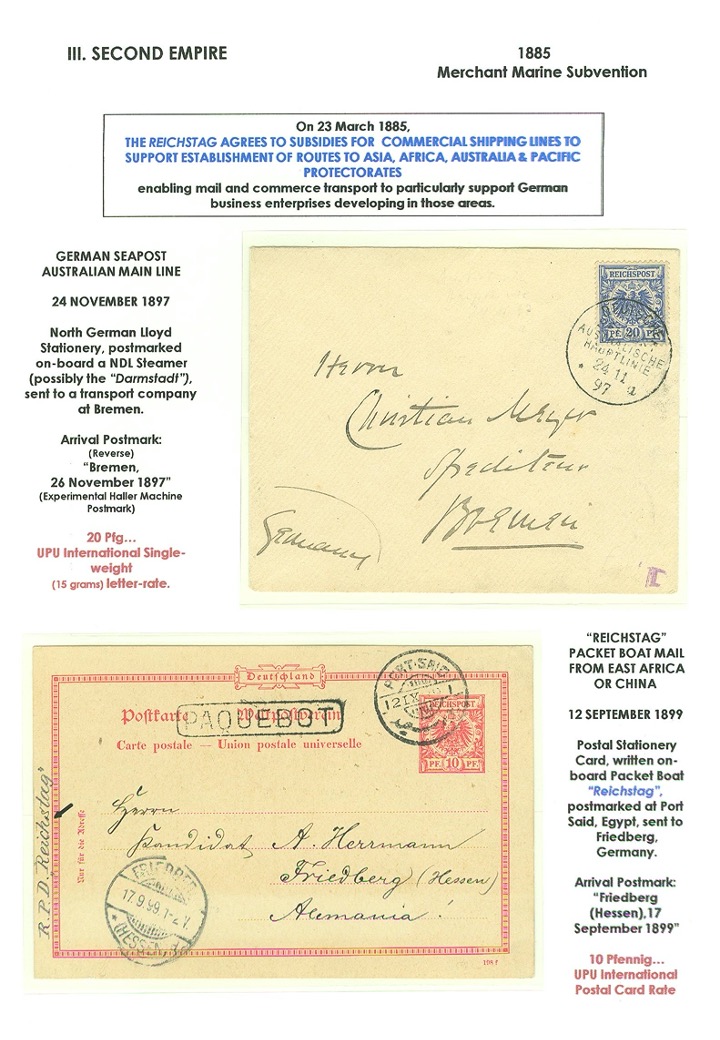 III. SECOND EMPIRE
1885
Merchant Marine Subvention
On 23 March 1885,
THE REICHSTAG AGREES TO SUBSIDIES FOR COMMERCIAL SHIPPING LINES TO
SUPPORT ESTABLISHMENT OF ROUTES TO ASIA, AFRICA, AUSTRALIA & PACIFIC
PROTECTORATES
enabling mail and commerce transport to particularly support German
business enterprises developing in those areas.
GERMAN SEAPOST
AUSTRALIAN MAIN LINE
24 NOVEMBER 1897
North German Lloyd
Stationery, postmarked
on-board a NDL Steamer
(possibly the "Darmstadt"),
sent to a transport company
at Bremen.
Arrival Postmark:
(Reverse)
"Bremen,
26 November 1897"
(Experimental Haller Machine
Postmark)
20 Pfg...
UPU International Single-
weight
(15 grams) letter-rate.
REICHSPOST
PF. 20 PF.
DEUTSCHE
AUSTRALISCHE
HAUPTLINIE
24 11
97 a
Herrn
Christian Meyer
Spediteur
Bremen
Germany
I
Deutschland
Postkarte Weltpostverein
PAQUEBOT
Carte postale — Union postale universelle
PORT-SAID
12 IX
REICHSPOST
PF. 10 PF.
Nur für die Adresse
R.P.D. "Reichstag"
Herrn
Kandidat A. Herrmann
Friedberg (Hessen)
Alemania!
FRIEDBERG
17.9.99.1-2 V.
(HESSEN)
198 f
"REICHSTAG"
PACKET BOAT MAIL
FROM EAST AFRICA
OR CHINA
12 SEPTEMBER 1899
Postal Stationery
Card, written on-
board Packet Boat
"Reichstag",
postmarked at Port
Said, Egypt, sent to
Friedberg,
Germany.
Arrival Postmark:
"Friedberg
(Hessen),17
September 1899"
10 Pfennig...
UPU International
Postal Card Rate